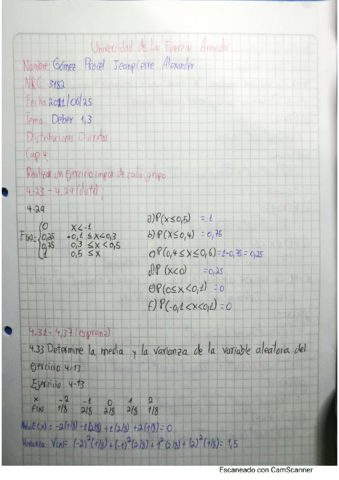 Universidad de las Fuerzas Armadas
Nombre: Gómez Procel Jeampierre Alexander
NRC: 3182
Fecha: 2021/06/25
Tema: Deber 1,3
Distribuciones Discretas
Cap 4
Realizar un ejercicio impar de cada grupo
4.23 - 4.29 (distr)
4.29
F(x)= 0 x<-1
0,25 -0,1 ≤ x < 0,3
0,75 0,3 ≤ x < 0,5
1 0,5 ≤ x
a) P(x≤0,5) = 1
b) P(X≤0,4) = 0,75
c) P(0,4≤x≤0,6)=1-0,75=0,25
d) P(x<0) =0,25
e) P(0≤x<0,1) =0
f) P(-0,1<x<0,1)=0
4.31 - 4.37 (espranz)
4.33 Determine la media y la varianza de la variable aleatoria del
ejercicio 4-13
Ejercicio 4-13
x -2 -1 0 1 2
f(x) 1/8 2/8 2/8 2/8 1/8
E(x) = -2(1/8)-1(2/8)+1(2/8)+2(1/8)=0
Varianza V(x)= (-2)²(1/8)+(-1)²(2/8)+1²(2/8)+(2)²(1/8)=1,5
Escaneado con CamScanner